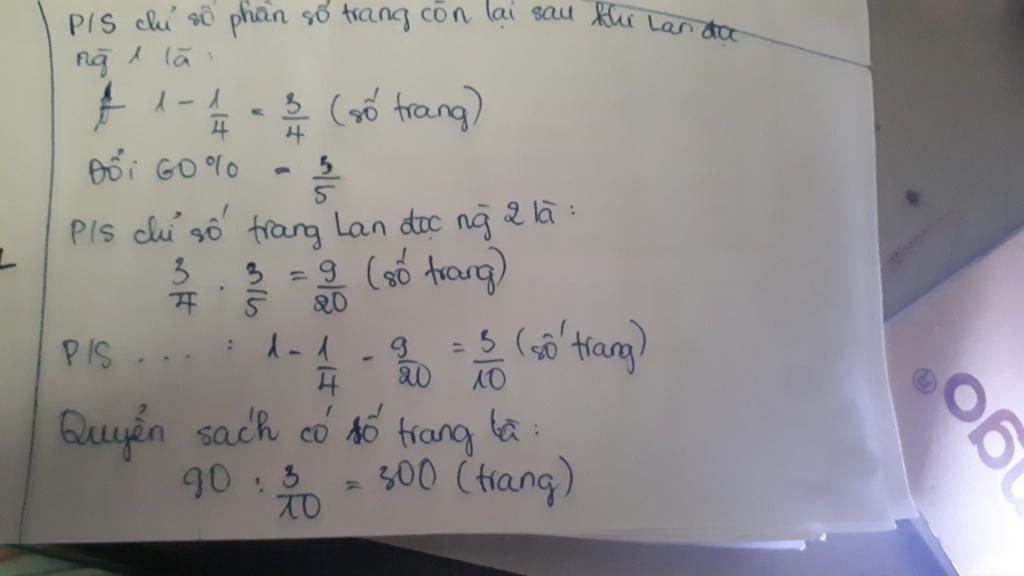 P/S chỉ số phần số trang còn lại sau khi Lan đọc
ng̀ 1 là:
1 - 1/4 = 3/4 (số trang)
Đổi 60% = 3/5
P/S chỉ số trang Lan đọc ng̀ 2 là:
3/4 . 3/5 = 9/20 (số trang)
P/S .... : 1 - 1/4 - 9/20 = 3/10 (số trang)
Quyển sách có số trang là:
90 : 3/10 = 300 (trang)